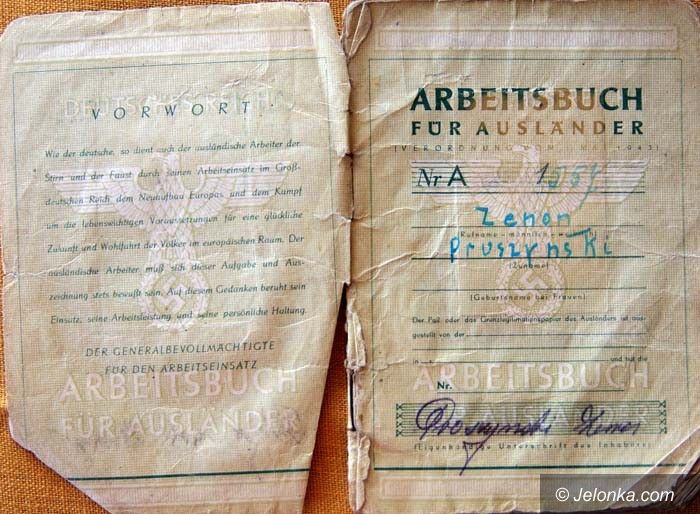 DEUTSCHES REICH
VORWORT
Wie der deutsche, so dient auch der ausländische Arbeiter der
Stirn und der Faust durch seinen Arbeitseinsatz im Groß-
deutschen Reich dem Neuaufbau Europas und dem Kampf
um die lebenswichtigen Voraussetzungen für eine glückliche
Zukunft und Wohlfahrt der Völker im europäischen Raum. Der
ausländische Arbeiter muß sich dieser Aufgabe und Aus-
zeichnung stets bewußt sein. Auf diesem Gedanken beruht sein
Einsatz, seine Arbeitsleistung und seine persönliche Haltung.
DER GENERALBEVOLLMÄCHTIGTE
FÜR DEN ARBEITSEINSATZ
ARBEITSBUCH
FÜR AUSLÄNDER
ARBEITSBUCH
FÜR AUSLÄNDER
(VERORDNUNG VOM 1. MAI 1943)
Nr A
Zenon
Rufname – männlich –
Pruszynski
(Zuname)
(Geburtsname bei Frauen)
Der Paß oder das Grenzlegitimationspapier des Ausländers ist aus-
gestellt von der
in und hat die
Nr.
ARBEITSBUCH
Pruszynski Zenon
(Eigenhändige Unterschrift des Inhabers)
© Jelonka.com